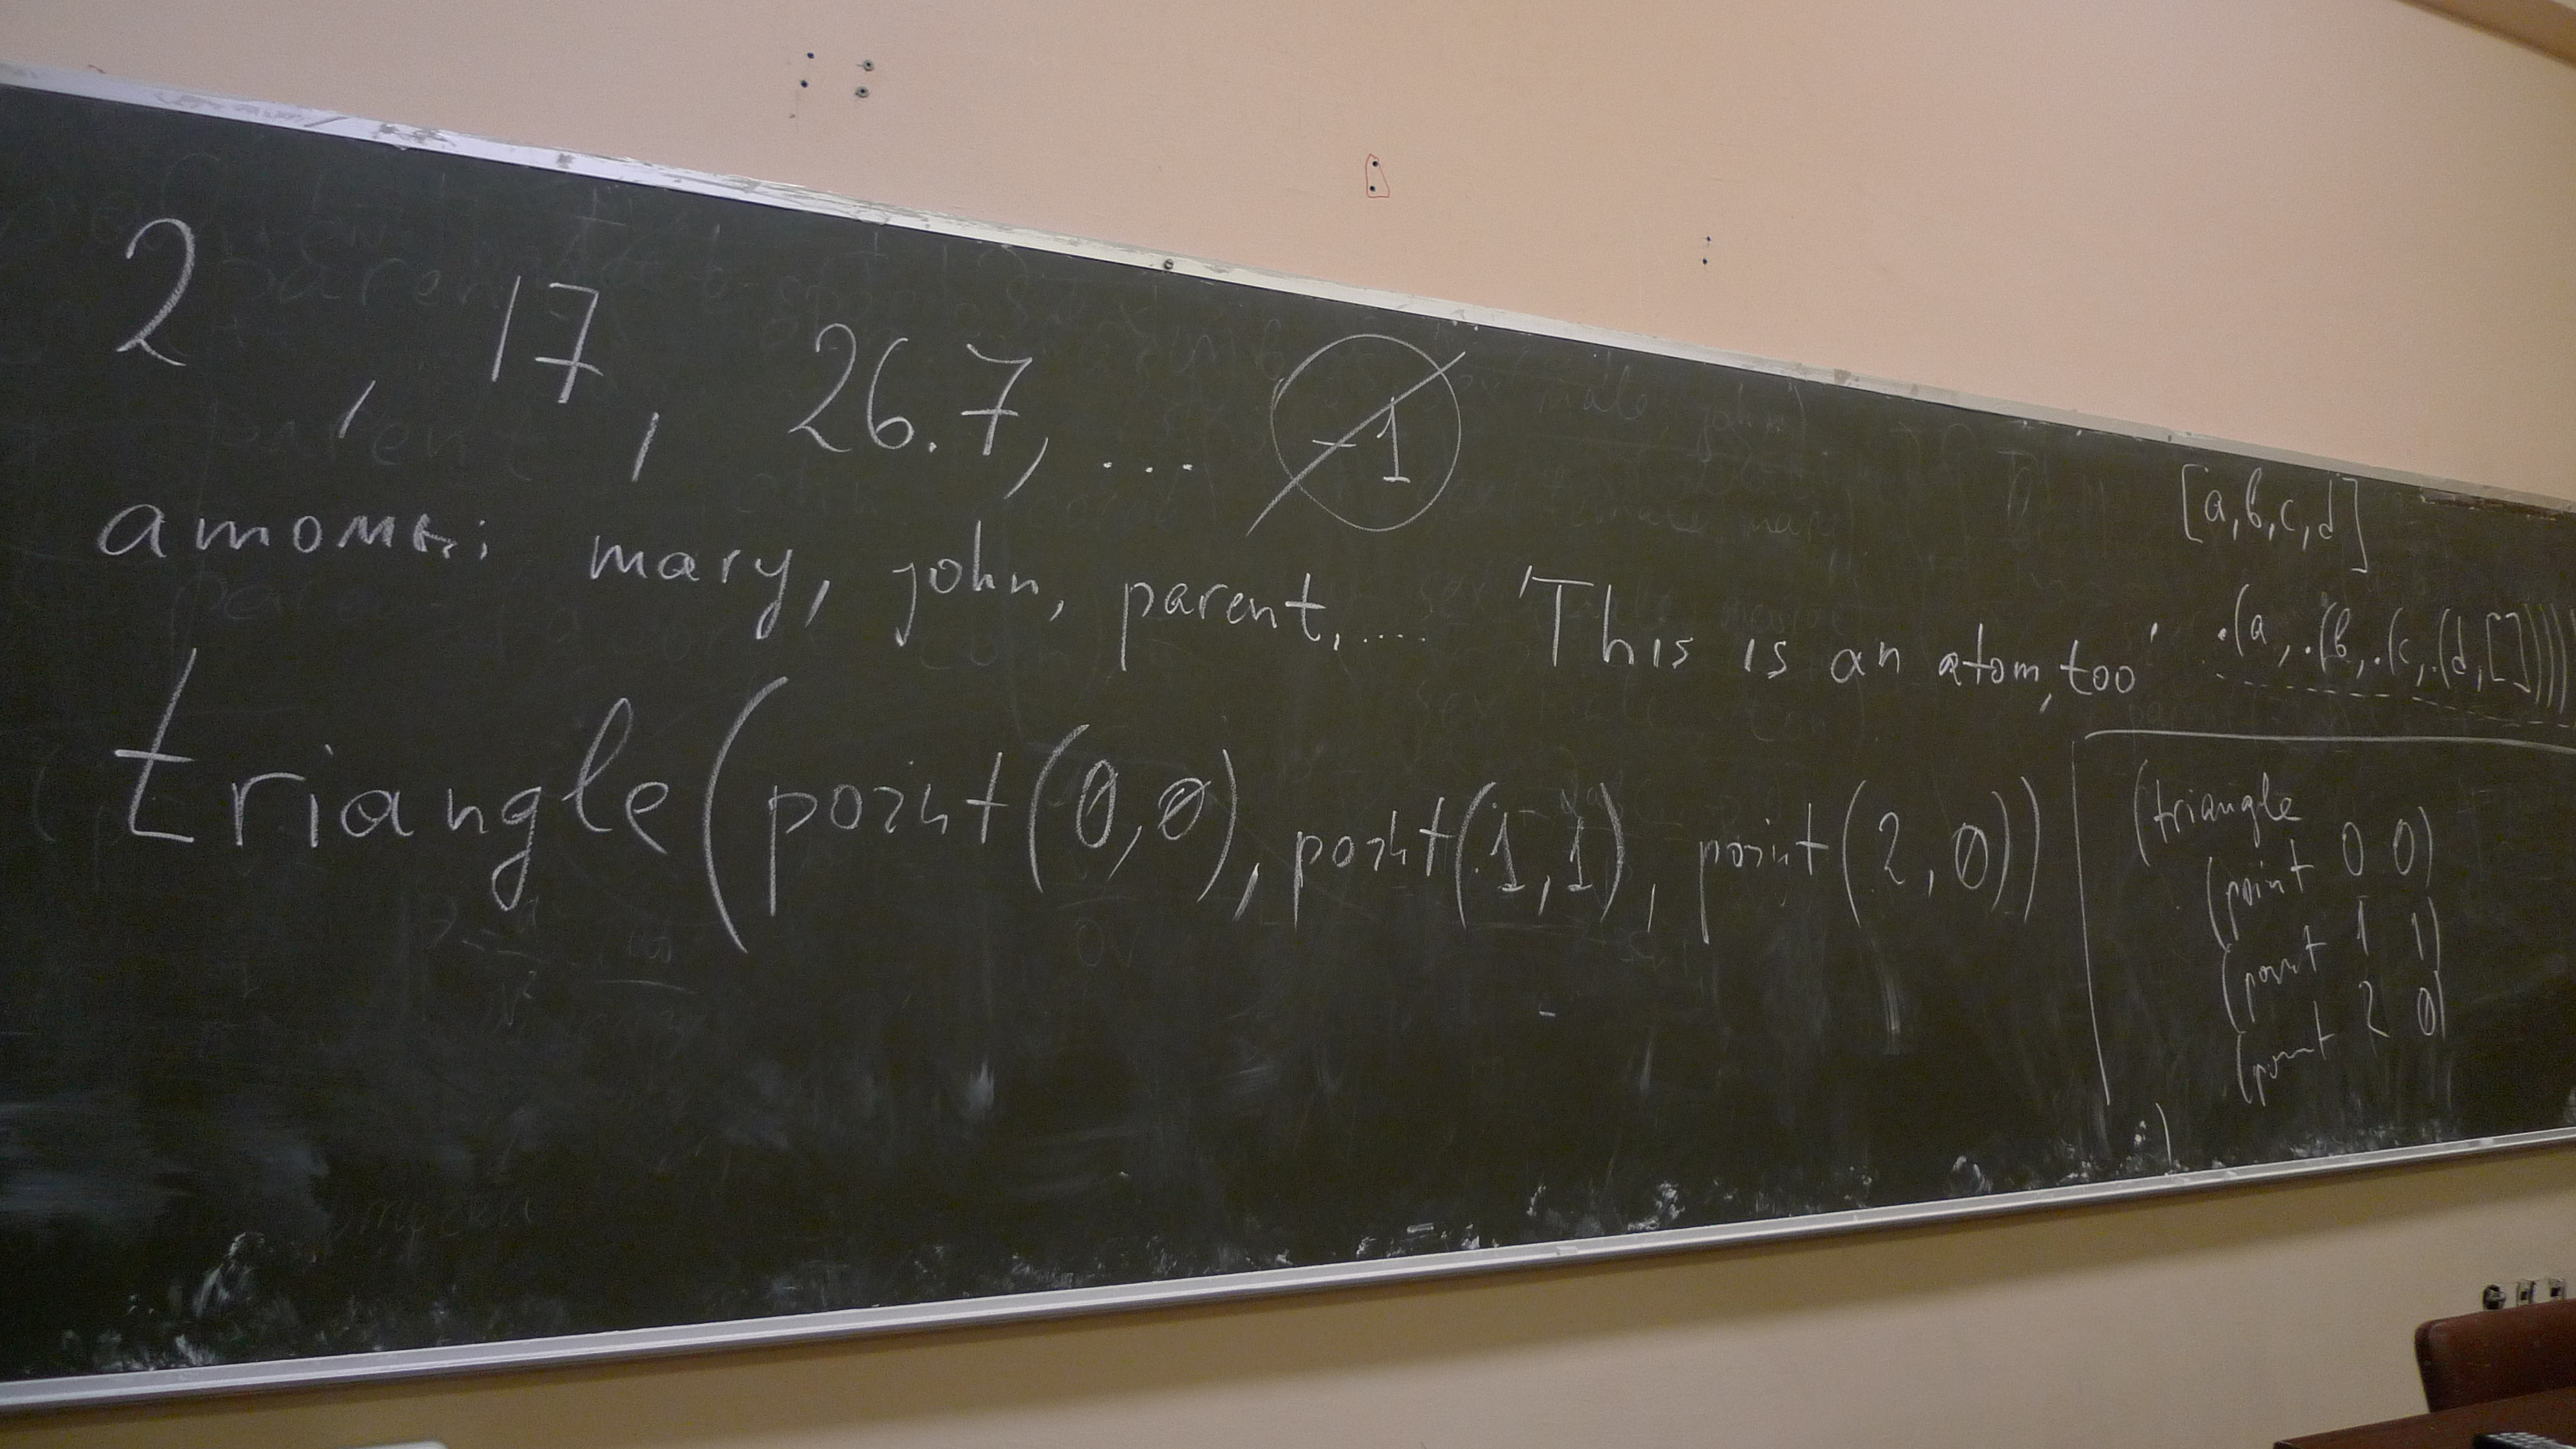 2, 17, 26.7, .... -1
атомы: mary, john, parent, .... 'This is an atom, too'
triangle(point(0,0), point(1,1), point(2,0))
[a,b,c,d]
.(a, .(b, .(c, .(d,[]))))
(triangle
(point 0 0)
(point 1 1)
(point 2 0)
)